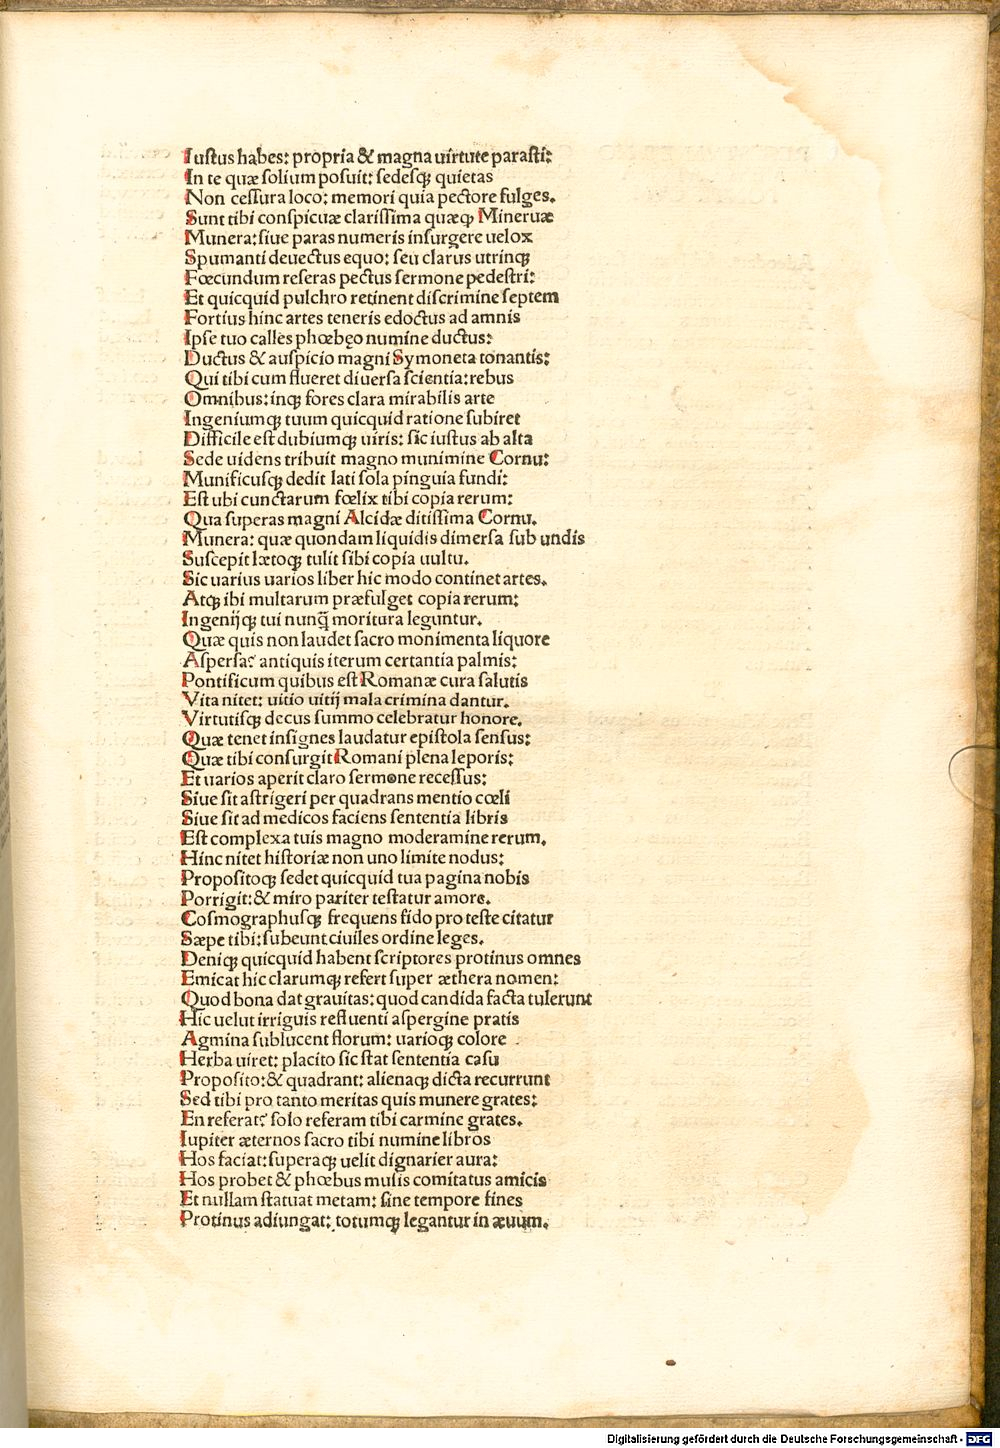 Iuſtus habes: propria & magna uirtute paraſti:
In te quæ ſolium poſuit: ſedesqꝫ quietas
Non ceſſura loco: memori quia pectore fulges.
Sunt tibi conſpicuæ clariſſima quæqꝫ Mineruæ
Munera: ſiue paras numeris inſurgere uelox
Spumanti deuectus equo: ſeu clarus utrinqꝫ
Fœcundum reſeras pectus ſermone pedeſtri:
Et quicquid pulchro retinent diſcrimine ſeptem
Fortius hinc artes teneris edoctus ad amnis
Ipſe tuo calles phœbęo numine ductus:
Ductus & auſpicio magni Symoneta tonantis:
Qui tibi cum flueret diuerſa ſcientia: rebus
Omnibus: inqꝫ fores clara mirabilis arte
Ingeniumqꝫ tuum quicquid ratione ſubiret
Difficile eſt dubiumqꝫ uiris: ſic iuſtus ab alta
Sede uidens tribuit magno munimine Cornu:
Munificusqꝫ dedit lati ſola pinguia fundi:
Eſt ubi cunctarum fœlix tibi copia rerum:
Qua ſuperas magni Alcidæ ditiſſima Cornu.
Munera: quæ quondam liquidis dimerſa ſub undis
Suſcepit lætoqꝫ tulit ſibi copia uultu.
Sic uarius uarios liber hic modo continet artes.
Atqꝫ ibi multarum præfulget copia rerum:
Ingenijqꝫ tui nunq̃ moritura leguntur.
Quæ quis non laudet ſacro monimenta liquore
Aſperſa? antiquis iterum certantia palmis:
Pontificum quibus eſt Romanæ cura ſalutis
Vita nitet: uitio uitij mala crimina dantur.
Virtutisqꝫ decus ſummo celebratur honore.
Quæ tenet inſignes laudatur epiſtola ſenſus:
Quæ tibi conſurgit Romani plena leporis:
Et uarios aperit claro ſermone receſſus:
Siue ſit aſtrigeri per quadrans mentio cœli
Siue ſit ad medicos faciens ſententia libris
Eſt complexa tuis magno moderamine rerum.
Hinc nitet hiſtoriæ non uno limite nodus:
Propoſitoqꝫ ſedet quicquid tua pagina nobis
Porrigit: & miro pariter teſtatur amore.
Coſmographusqꝫ frequens fido pro teſte citatur
Sæpe tibi: ſubeunt ciuiles ordine leges.
Deniqꝫ quicquid habent ſcriptores protinus omnes
Emicat hic clarumqꝫ refert ſuper æthera nomen:
Quod bona dat grauitas: quod candida facta tulerunt
Hic uelut irriguis refluenti aſpergine pratis
Agmina ſublucent florum: uarioqꝫ colore
Herba uiret: placito ſic ſtat ſententia caſu
Propoſito: & quadrant: alienaqꝫ dicta recurrunt
Sed tibi pro tanto meritas quis munere grates:
En referat? ſolo referam tibi carmine grates.
Iupiter æternos ſacro tibi numine libros
Hos faciat: ſuperaqꝫ uelit dignarier aura:
Hos probet & phœbus muſis comitatus amicis
Et nullam ſtatuat metam: ſine tempore fines
Protinus adiungat: totumqꝫ legantur in æuum.
Digitalisierung gefördert durch die Deutsche Forschungsgemeinschaft - DFG